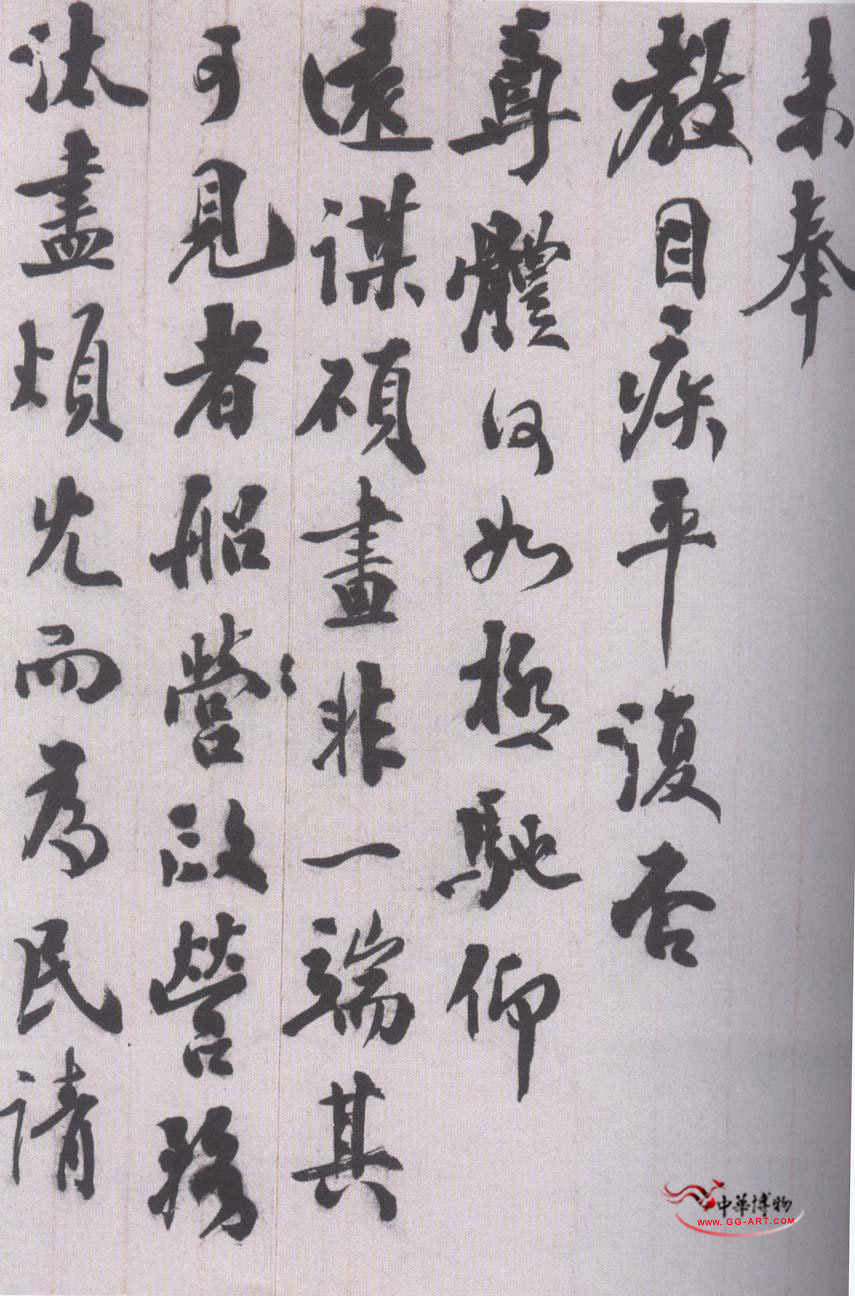 未奉
教目疾平復否
尊體何如極馳仰
遠謀碩畫非一端其
可見者船營啟營務
汰盡煩冗而為民請
中華博物
WWW.GG-ART.COM